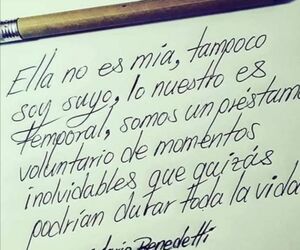 Ella no es mía, tampoco
soy suyo, lo nuestro es
temporal, somos un préstamo
voluntario de momentos
inolvidables que quizás
podrían durar toda la vida
Mario Benedetti